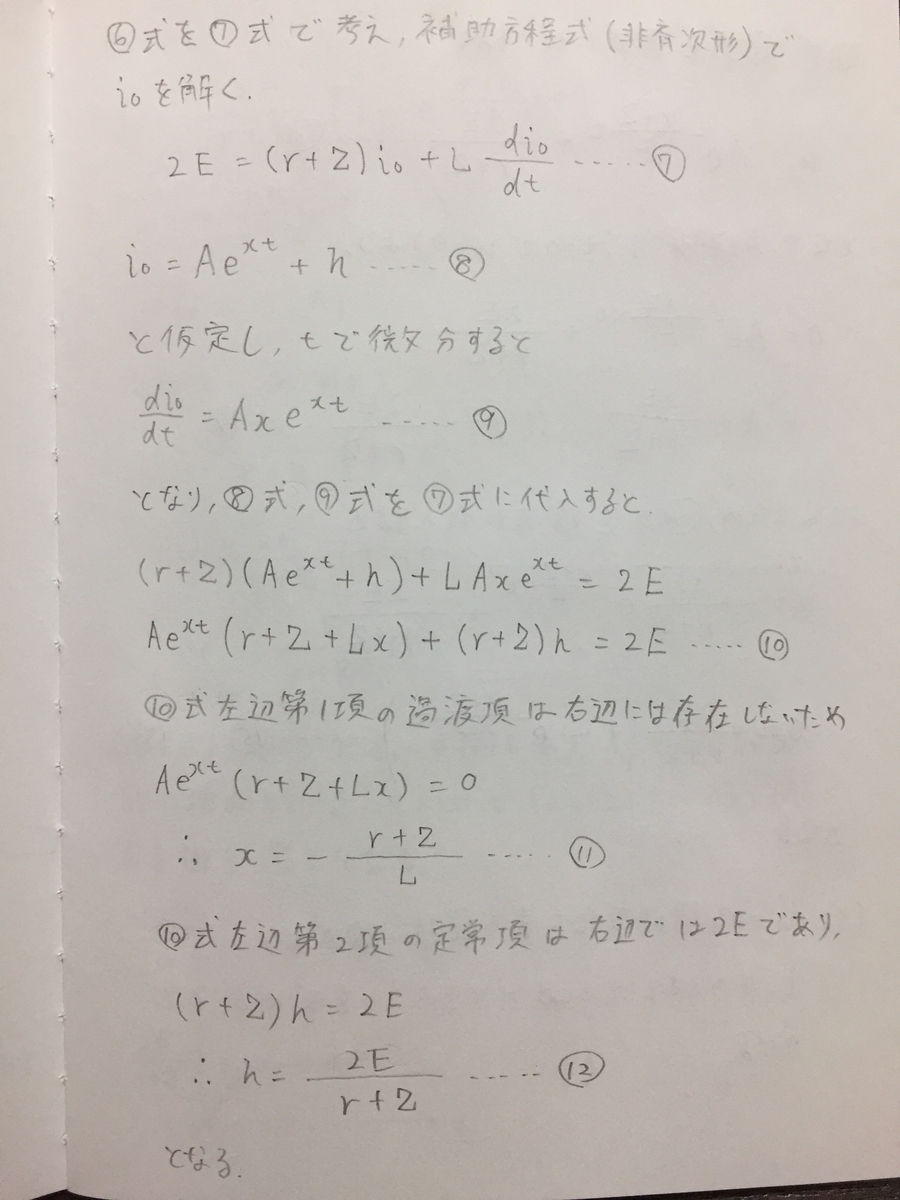 ⑥式を⑦式で考え,補助方程式(非斉次形)で
i₀を解く.
2E = (r+Z)i₀ + L di₀/dt ‥‥‥⑦
i₀ = Ae^{xt} + h ‥‥‥⑧
と仮定し,tで微分すると
di₀/dt = Axe^{xt} ‥‥‥⑨
となり,⑧式,⑨式を⑦式に代入すると.
(r+Z)(Ae^{xt}+h)+LAxe^{xt} = 2E
Ae^{xt}(r+Z+Lx)+(r+Z)h = 2E ‥‥‥⑩
⑩式左辺第1項の過渡項は右辺には存在しないため
Ae^{xt}(r+Z+Lx) = 0
∴ x = - (r+Z)/L ‥‥‥⑪
⑩式左辺第2項の定常項は右辺では2Eであり,
(r+Z)h = 2E
∴ h = 2E/(r+Z) ‥‥‥⑫
となる.